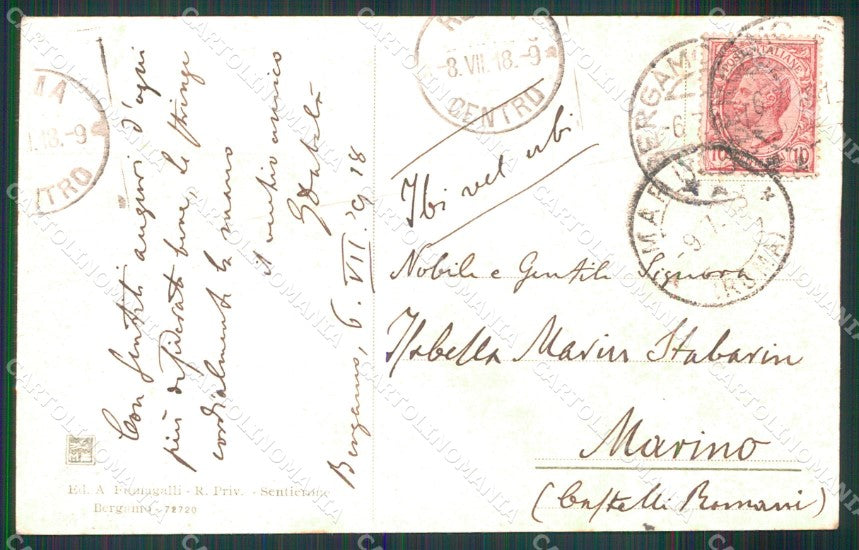 Con gentili auguri d'ogni
più desiderato bene, le stringe
cordialmente la mano
il vecchio amico
Bergamo, 6. VII. 1918
Ibi vel ubi
Nobile e Gentile Signora
Isabella Marini Stabarin
Marino
(Castelli Romani)
Ed. A. Fiumagalli - R. Priv. - Sentierone
Bergamo - 72720
ROMA
-8.VII.18.-9
CENTRO
MA
I.18.-9
NTRO
BERGAMO
-6.
POSTE ITALIANE
10 10
MARINO
9.7.18
(ROMA)
CARTOLINOMANIA